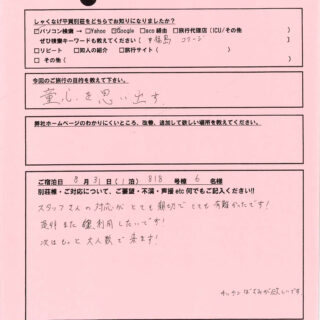 しゃくなげ平貸別荘をどちらでお知りになりましたか?
☑パソコン検索 → □Yahoo ☑Google □sco 経由 □旅行代理店 (ICU/その他 )
ぜひ検索キーワードも教えてください (
福島 コテージ )
□リピート □知人の紹介 □旅行サイト( )
□その他( )
今回のご旅行の目的を教えて下さい。
童心を思い出す。
弊社ホームページのわかりにくいところ、改善、追加して欲しい場所を教えてください。
ご宿泊日 8 月 31 日 ( 1 泊) 818 号棟 6 名様
別荘様・ご対応について、ご要望・不満・声援 etc 何でもご記入ください!!
スタッフさんの対応がとても親切でとても有難かったです!
是非また 利用したいです!
次はもっと大人数で来ます!
キッチンばさみが欲しいです